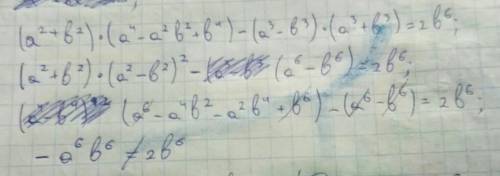 (a²+b²)·(a⁴-a²b²+b⁴)-(a³-b³)·(a³+b³)=2b⁶;
(a²+b²)·(a²-b²)²-(a⁶-b⁶)=2b⁶;
(a⁶-a⁴b²-a²b⁴+b⁶)-(a⁶-b⁶)=2b⁶;
-a⁶b⁶≠2b⁶